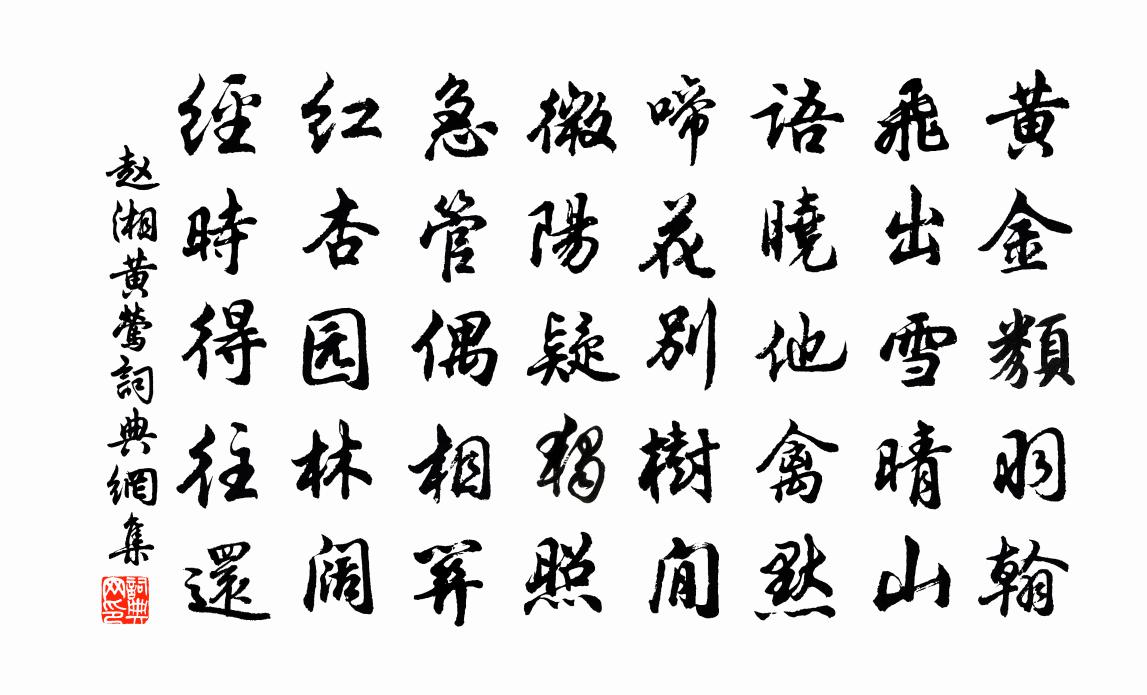 黄金類羽翰
飛出雪晴山
語曉他禽默
啼花別樹間
微陽疑獨照
急管偶相關
红杏园林闊
經時得往還
赵湘黄莺詞典網集
詞典网印